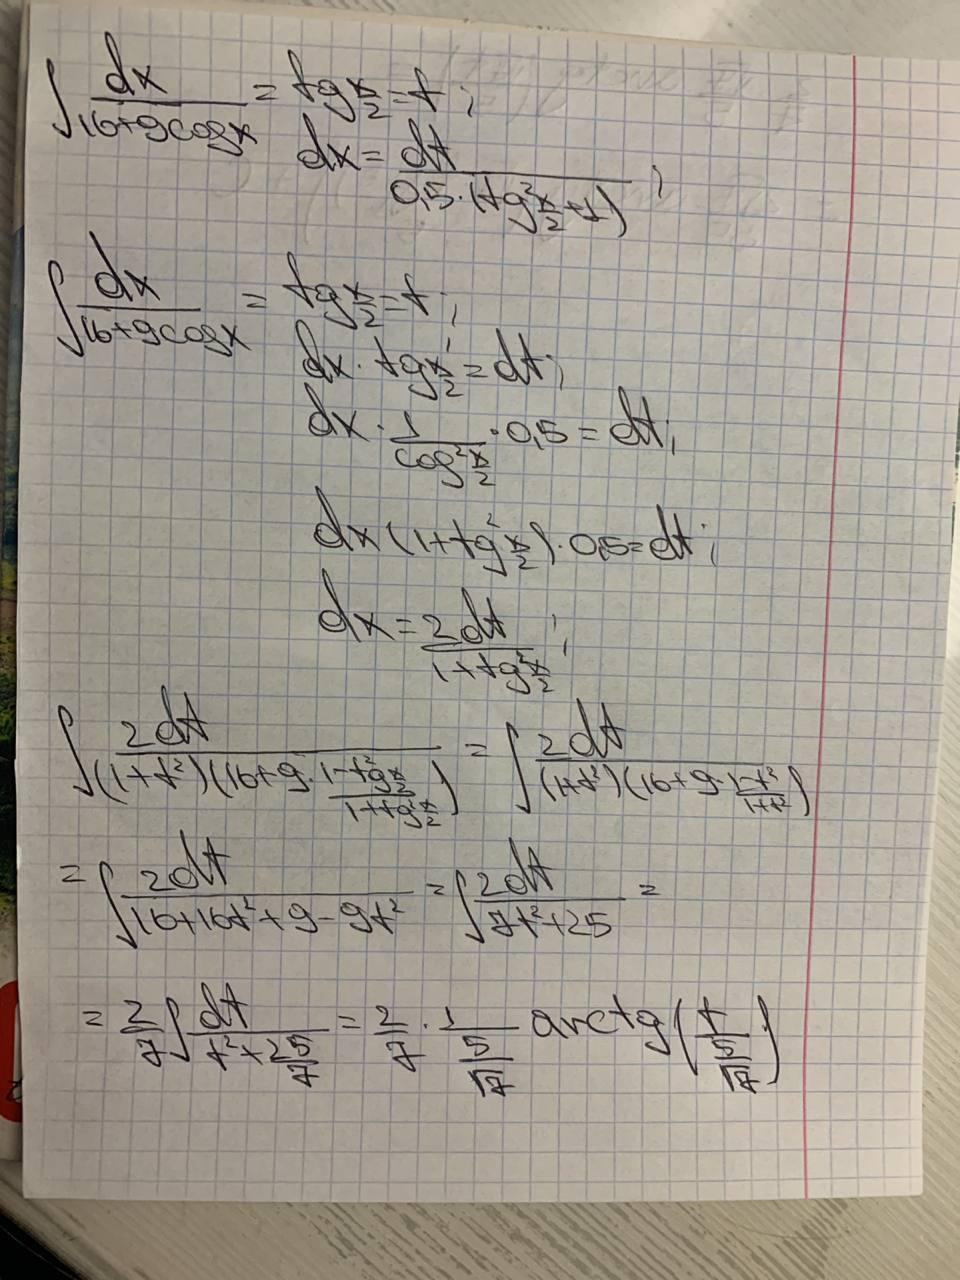 ∫ dx/(16+9cosx) = tg x/2 = t;
dx = dt/(0,5·(tg² x/2 + 1));
∫ dx/(16+9cosx) = tg x/2 = t;
dx · tg x/2' = dt;
dx · 1/(cos² x/2) · 0,5 = dt;
dx (1+tg² x/2) · 0,5 = dt;
dx = 2dt/(1+tg² x/2);
∫ 2dt/((1+t²)(16+9·(1-tg² x/2)/(1+tg² x/2))) = ∫ 2dt/((1+t²)(16+9·(1-t²)/(1+t²)))
= ∫ 2dt/(16+16t²+9-9t²) = ∫ 2dt/(7t²+25) =
= 2/7 ∫ dt/(t²+25/7) = 2/7 · 1/(5/√7) arctg(t/(5/√7))